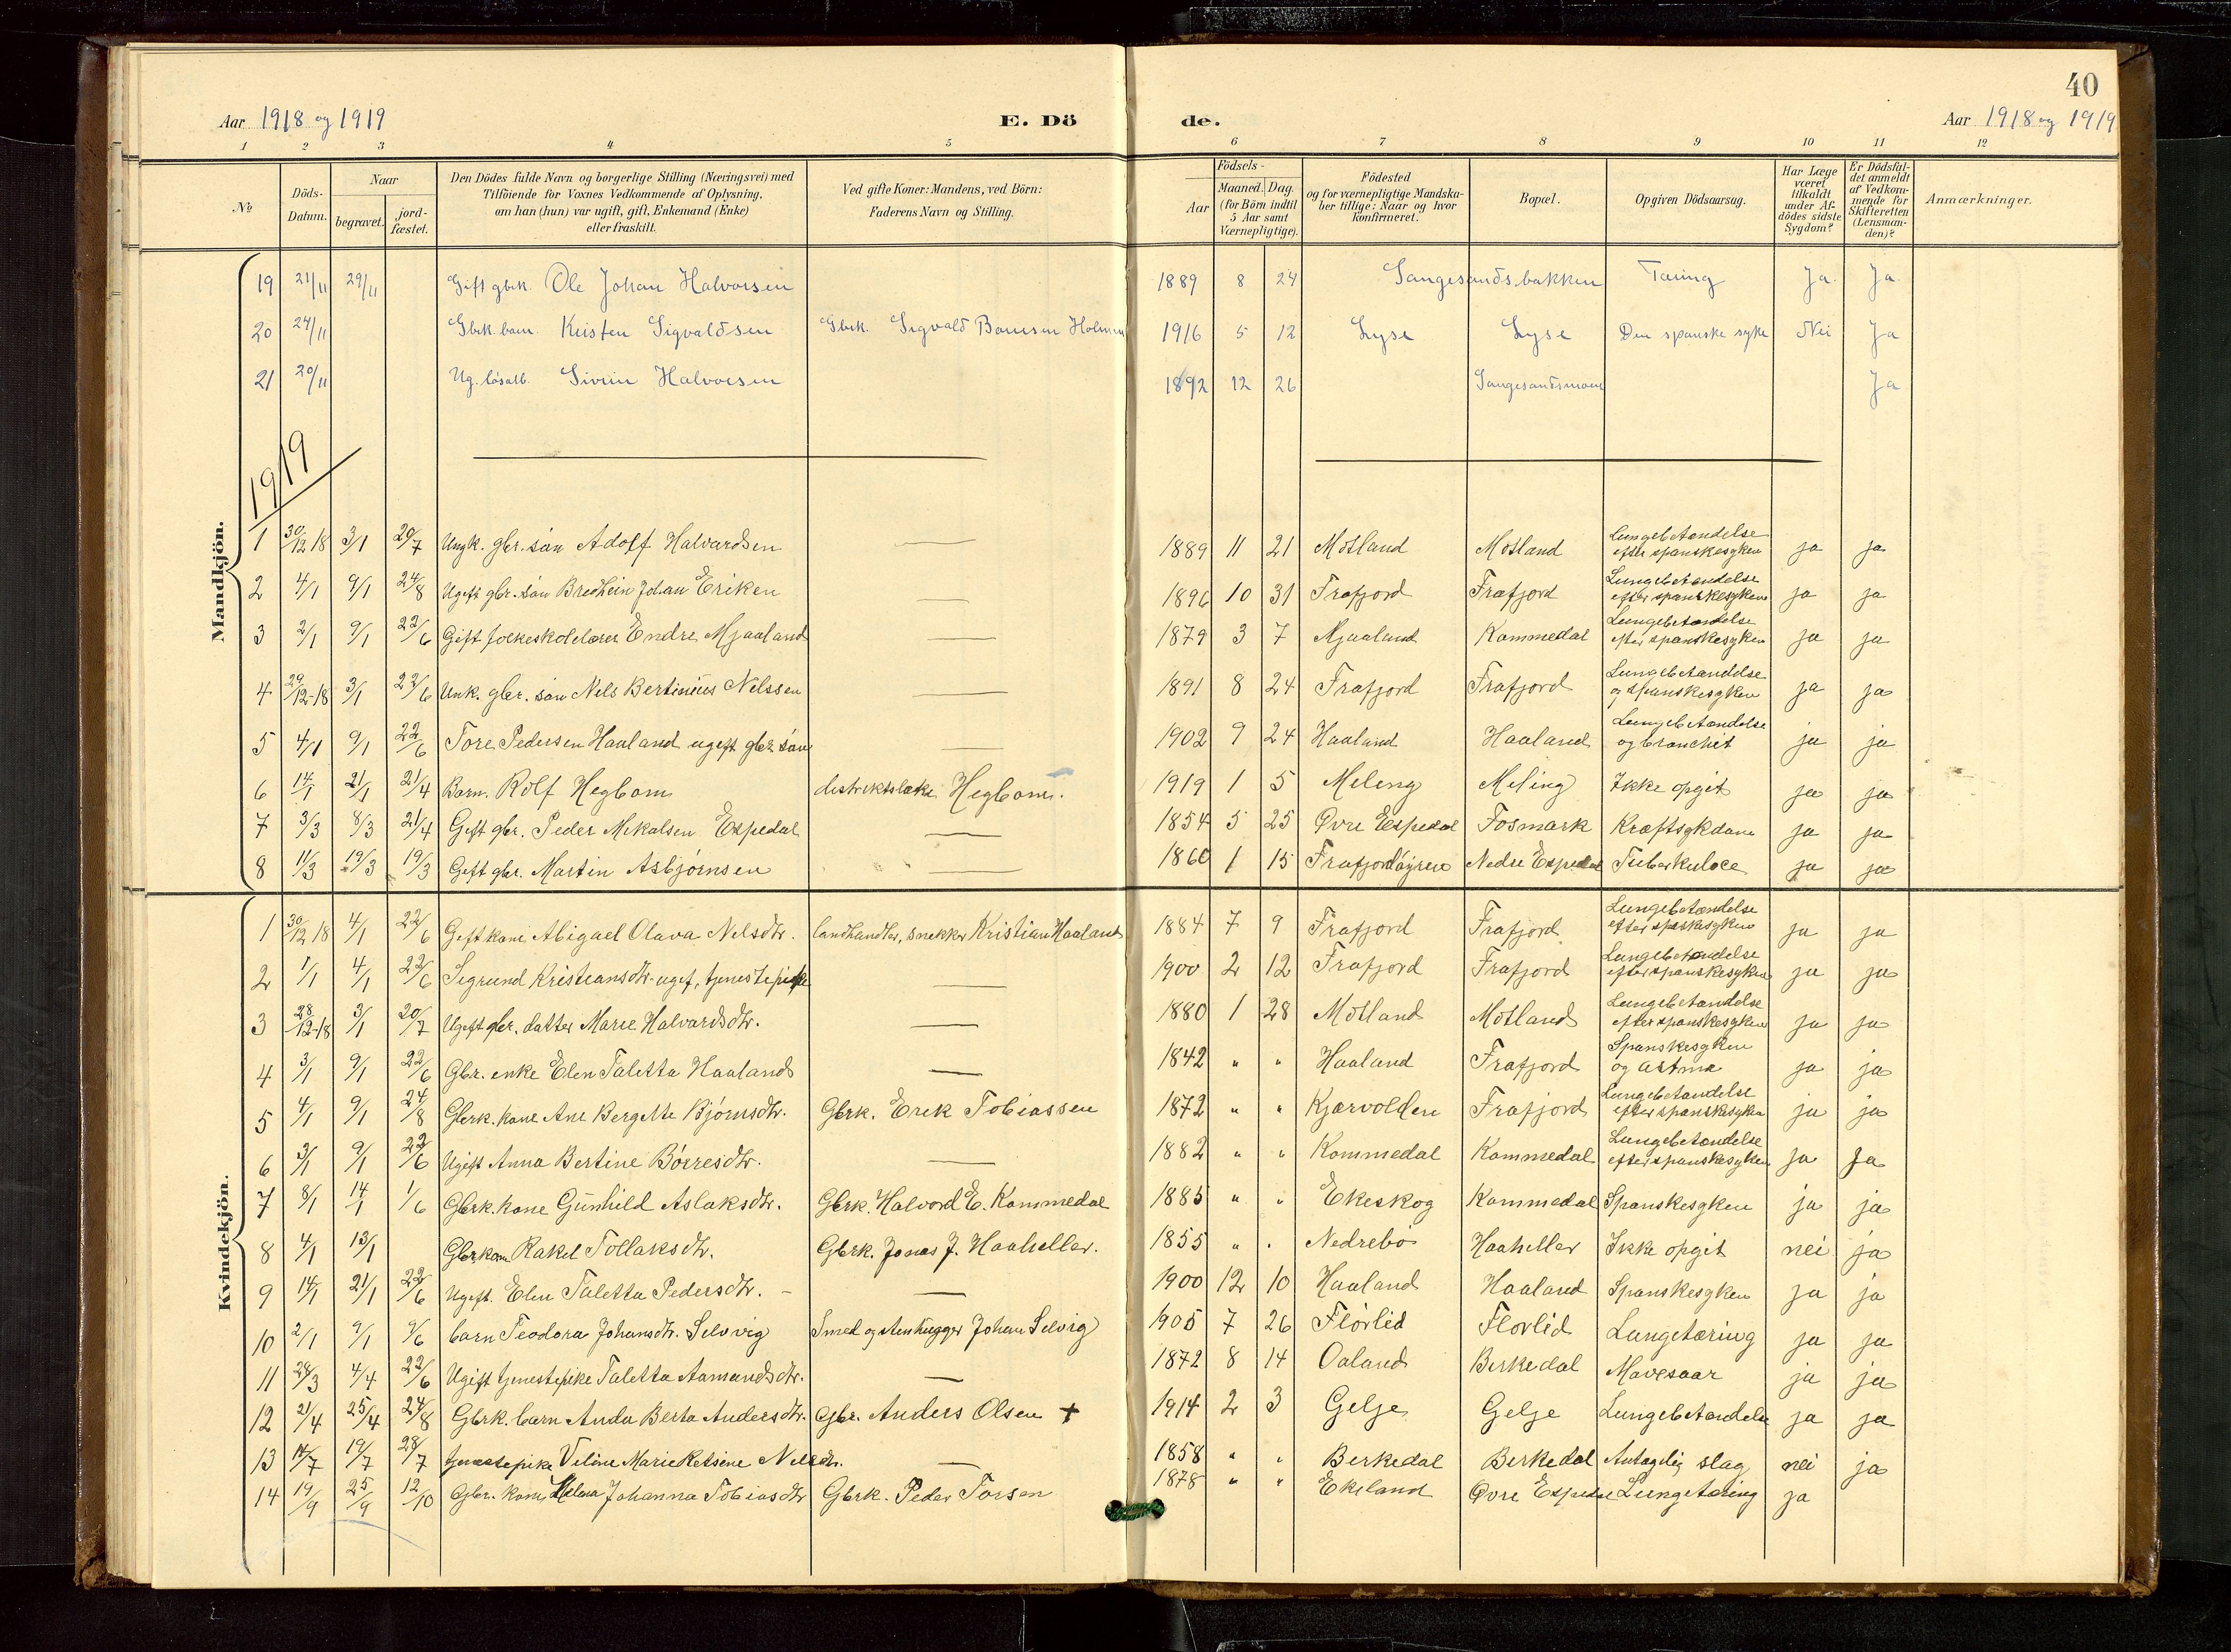 40
Aar 1918 og 1919 E. Dö de. Aar 1918 og 1919
1 2 3 4 5 6 7 8 9 10 11 12
No
Döds-Datum.
Naar
begravet.
jord-fæstet.
Den Dödes fulde Navn og borgerlige Stilling (Næringsvei) med
Tilföiende for Voxnes Vedkommende af Oplysning,
om han (hun) var ugift, gift, Enkemand (Enke)
eller fraskilt.
Ved gifte Koner: Mandens, ved Börn:
Faderens Navn og Stilling.
Födsels-
Aar
Maaned. Dag.
(for Börn indtil
5 Aar samt
Værnepligtige).
Födested
og for værnepligtige Mandska-
ber tillige: Naar og hvor
konfirmeret.
Bopæl.
Opgiven Dödsaarsag.
Har Læge
været
tilkaldt
under Af-
dödes sidste
Sygdom?
Er Dödsfal-
det anmeldt
af Vedkom-
mende for
Skifteretten
(Lensman-
den)?
Anmærkninger.
Mandkjön.
19 21/11 29/11 Gift gbrk. Ole Johan Halvorsen 1889 8 24 Sangesandsbakken Tæring Ja Ja
20 24/11 Gbrk. barn Kristen Sigvaldsen Gbrk. Sigvald Holmen 1916 5 12 Lyse Lyse Den spanske syke Nei Ja
21 20/11 Ug. lösarb. Sivrin Halvorsen 1892 12 26 Sangesandsmoen Ja
1919
1 30/12 18 3/1 20/7 Ungk. gbr. sön Adolf Halvardsen 1889 11 21 Motland Motland Lungebetændelse efter spanskesyken ja ja
2 4/1 9/1 24/8 Ugift gbr. sön Johan Eriken 1896 10 31 Frafjord Frafjord Lungebetændelse efter spanskesyken ja ja
3 2/1 9/1 22/6 Gift folkeskolelærer Endre Mjaaland 1879 3 7 Mjaaland Kommedal Lungebetændelse efter spanskesyken ja ja
4 29/12-18 3/1 22/6 Unk. gbr. sön Nels Bertinius Nelssen 1891 8 24 Frafjord Frafjord Lungebetændelse og spanskesyken ja ja
5 4/1 9/1 22/6 Tore Pedersen Haaland ugift gbr sön 1902 9 24 Haaland Haaland Lungebetændelse og bronchit ja ja
6 14/1 21/1 21/4 Barn. Rolf Hegbom distriktslæke Hegbom. 1919 1 5 Meleng Meling Ikke opgit ja ja
7 3/3 8/3 21/4 Gift gbr. Peder Mikalsen Espedal 1854 5 25 Øvre Espedal Fosmark Kræftsykdom ja ja
8 11/3 19/3 19/3 Gift gbr. Martin Asbjørnsen 1860 1 15 Frafjordöyren Nedre Espedal Tuberkulose ja ja
Kvindekjön.
1 30/12 18 4/1 22/6 Gift kone Abigael Olava Nelsdtr. landhandler, snekker Kristian Haaland 1884 7 9 Frafjord Frafjord Lungebetændelse efter spanskesyken ja ja
2 1/1 4/1 22/6 Segrund Kristiansdtr. ugif, tjenestepike 1900 2 12 Frafjord Frafjord Lungebetændelse efter spanskesyken ja ja
3 28/12-18 3/1 20/7 Ugift gbr. datter Marie Halvardsdtr. 1880 1 28 Motland Motland Lungebetændelse efter spanskesyken ja ja
4 3/1 9/1 22/6 Gbr. enke Elen Taletta Haaland 1842 " " Haaland Frafjord Spanskesyken og astma ja ja
5 4/1 9/1 24/8 Gbrk. kone Ane Bergitte Bjørnsdtr. Gbrk. Erik Tobiassen 1872 " " Kjærvolden Frafjord Lungebetændelse efter spanskesyken ja ja
6 3/1 9/1 22/6 Ugift Anna Bertine Börresdtr. 1882 " " Kommedal Kommedal Lungebetændelse efter spanskesyken ja ja
7 8/1 14/1 1/6 Gbrk. kone Gunhild Aslaksdtr. Gbrk. Halvord E. Kommedal 1885 " " Ekeskog Kommedal Spanskesyken ja ja
8 4/1 13/1 Gbrkone Rakel Tollaksdtr. Gbrk. Jonas J. Haaheller. 1855 " " Nedrebö Haaheller Ikke opgit nei ja
9 14/1 21/1 22/6 Ugift. Elen Taletta Pedersdtr. 1900 12 10 Haaland Haaland Spanskesyken ja ja
10 2/1 9/1 9/6 barn Teodora Johansdtr. Selvvig Smed og stenhugger Johan Selvig 1905 7 26 Flörlid Flörlid Lungetæring ja ja
11 28/3 4/4 22/6 Ugift tjenestepike Taletta Aamundsdtr. 1872 8 14 Oaland Birkedal Mavesaar ja ja
12 21/4 25/4 24/8 Gbrk. barn Anda Berta Andersdtr. Gbr. Anders Olsen + 1914 2 3 Gelje Gelje Lungebetændelse ja ja
13 14/7 19/7 28/7 tjenestepike Veline Marie Nelsdtr. 1858 " " Berkedal Berkedal Antagelig slag nei ja
14 19/9 25/9 12/10 Gbr. kone Helena Johanna Tobiasdtr Gbrk. Peder Torsen 1878 " " Ekeland Øvre Espedal Lungetæring ja